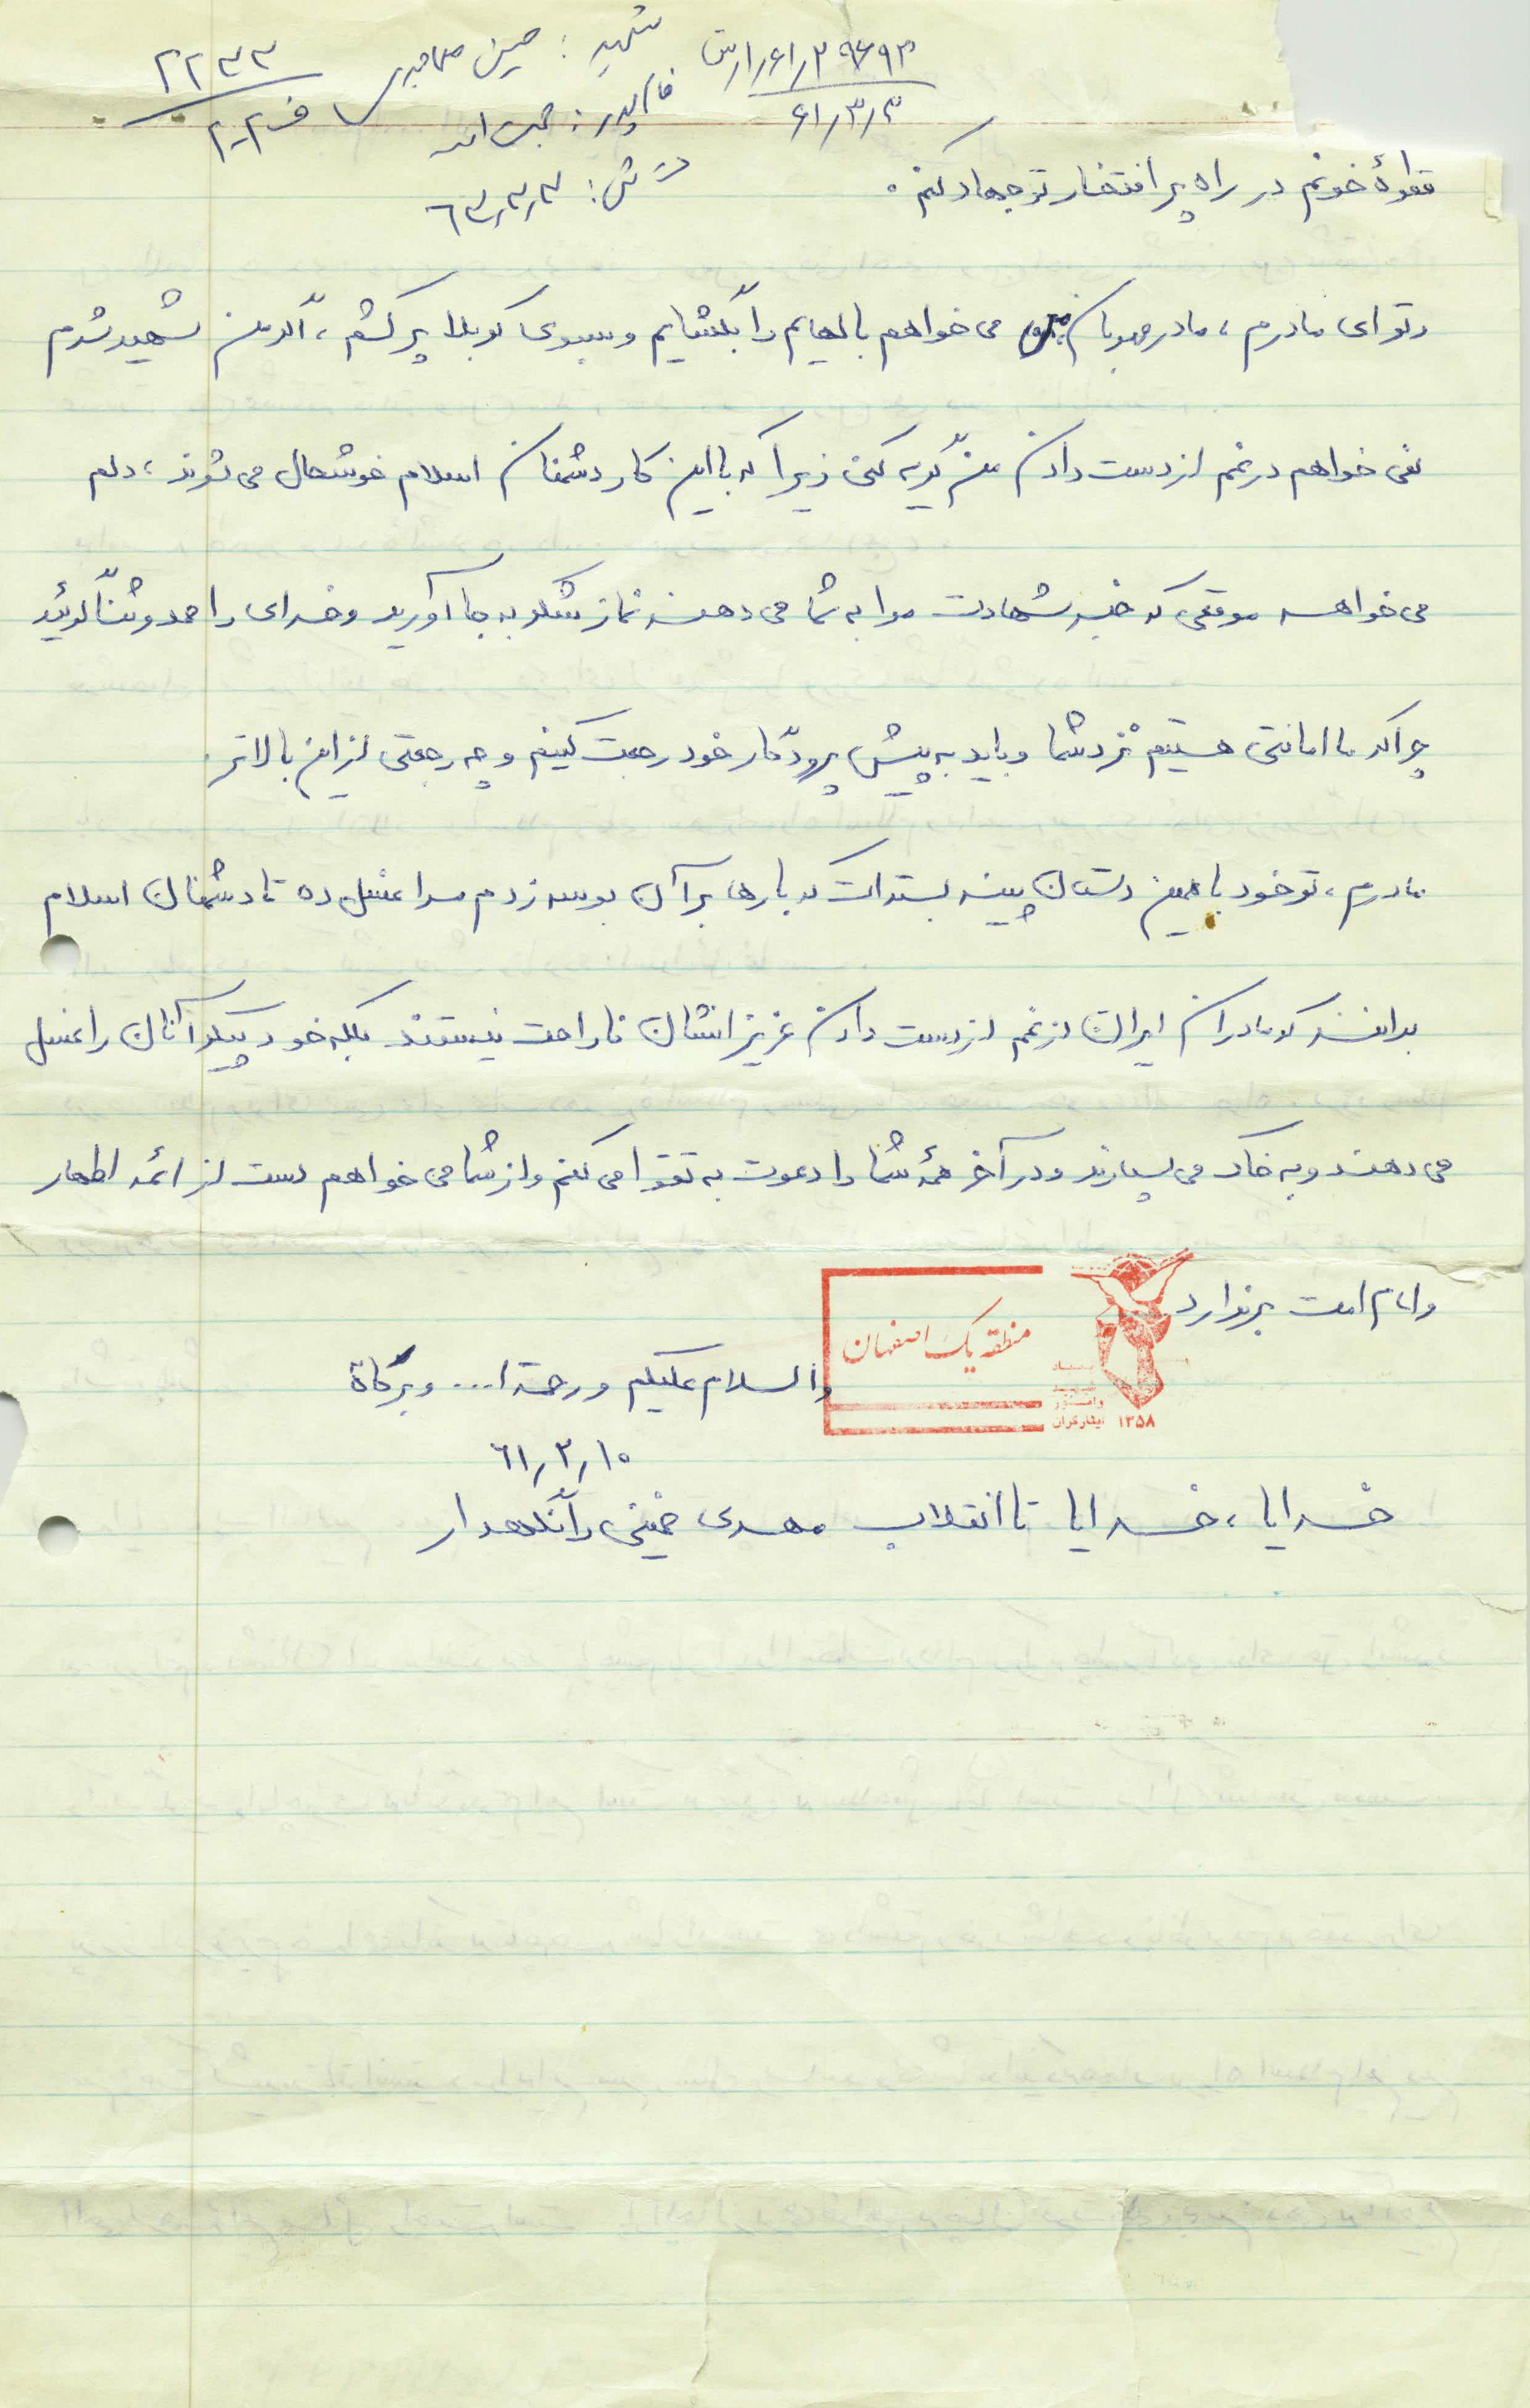 شهید: حسین
نام پدر:
ف ۲۰۲
۶۱٫۳٫۳
قطرهٔ خونم در راه پر افتخار تو جهاد کنم.
و تو ای مادرم، مادر مهربان می خواهم بالهایم را بگشایم و بسوی کربلا پر کشم، اگر من شهید شدم
نمی خواهم در غم از دست دادن من گریه کنی زیرا که با این کار دشمنان اسلام خوشحال می شوند، دلم
می خواهد موقعی که خبر شهادت مرا به شما می دهند نماز شکر به جا آورید و خدای را حمد و ثنا گوئید
چرا که ما امانتی هستیم نزد شما و باید به پیش پروردگار خود رجعت کنیم و چه رجعتی از این بالاتر.
مادرم، تو خود با همین دستان پینه بسته ات که بارها بر آن بوسه زدم مرا غسل ده تا دشمنان اسلام
بدانند که مادران ایران از غم از دست دادن عزیزانشان ناراحت نیستند بلکه خود پیکر آنان را غسل
می دهند و به خاک می سپارند و در آخر همهٔ شما را دعوت به تقوا می کنم و از شما می خواهم دست از ائمه اطهار
و امام امت برندارید
منطقه یک اصفهان
۱۳۵۸ ایثارگران
والسلام علیکم و رحمة ا... و برکاة
۶۱٫۲٫۱۰
خدایا، خدایا تا انقلاب مهدی خمینی را نگهدار